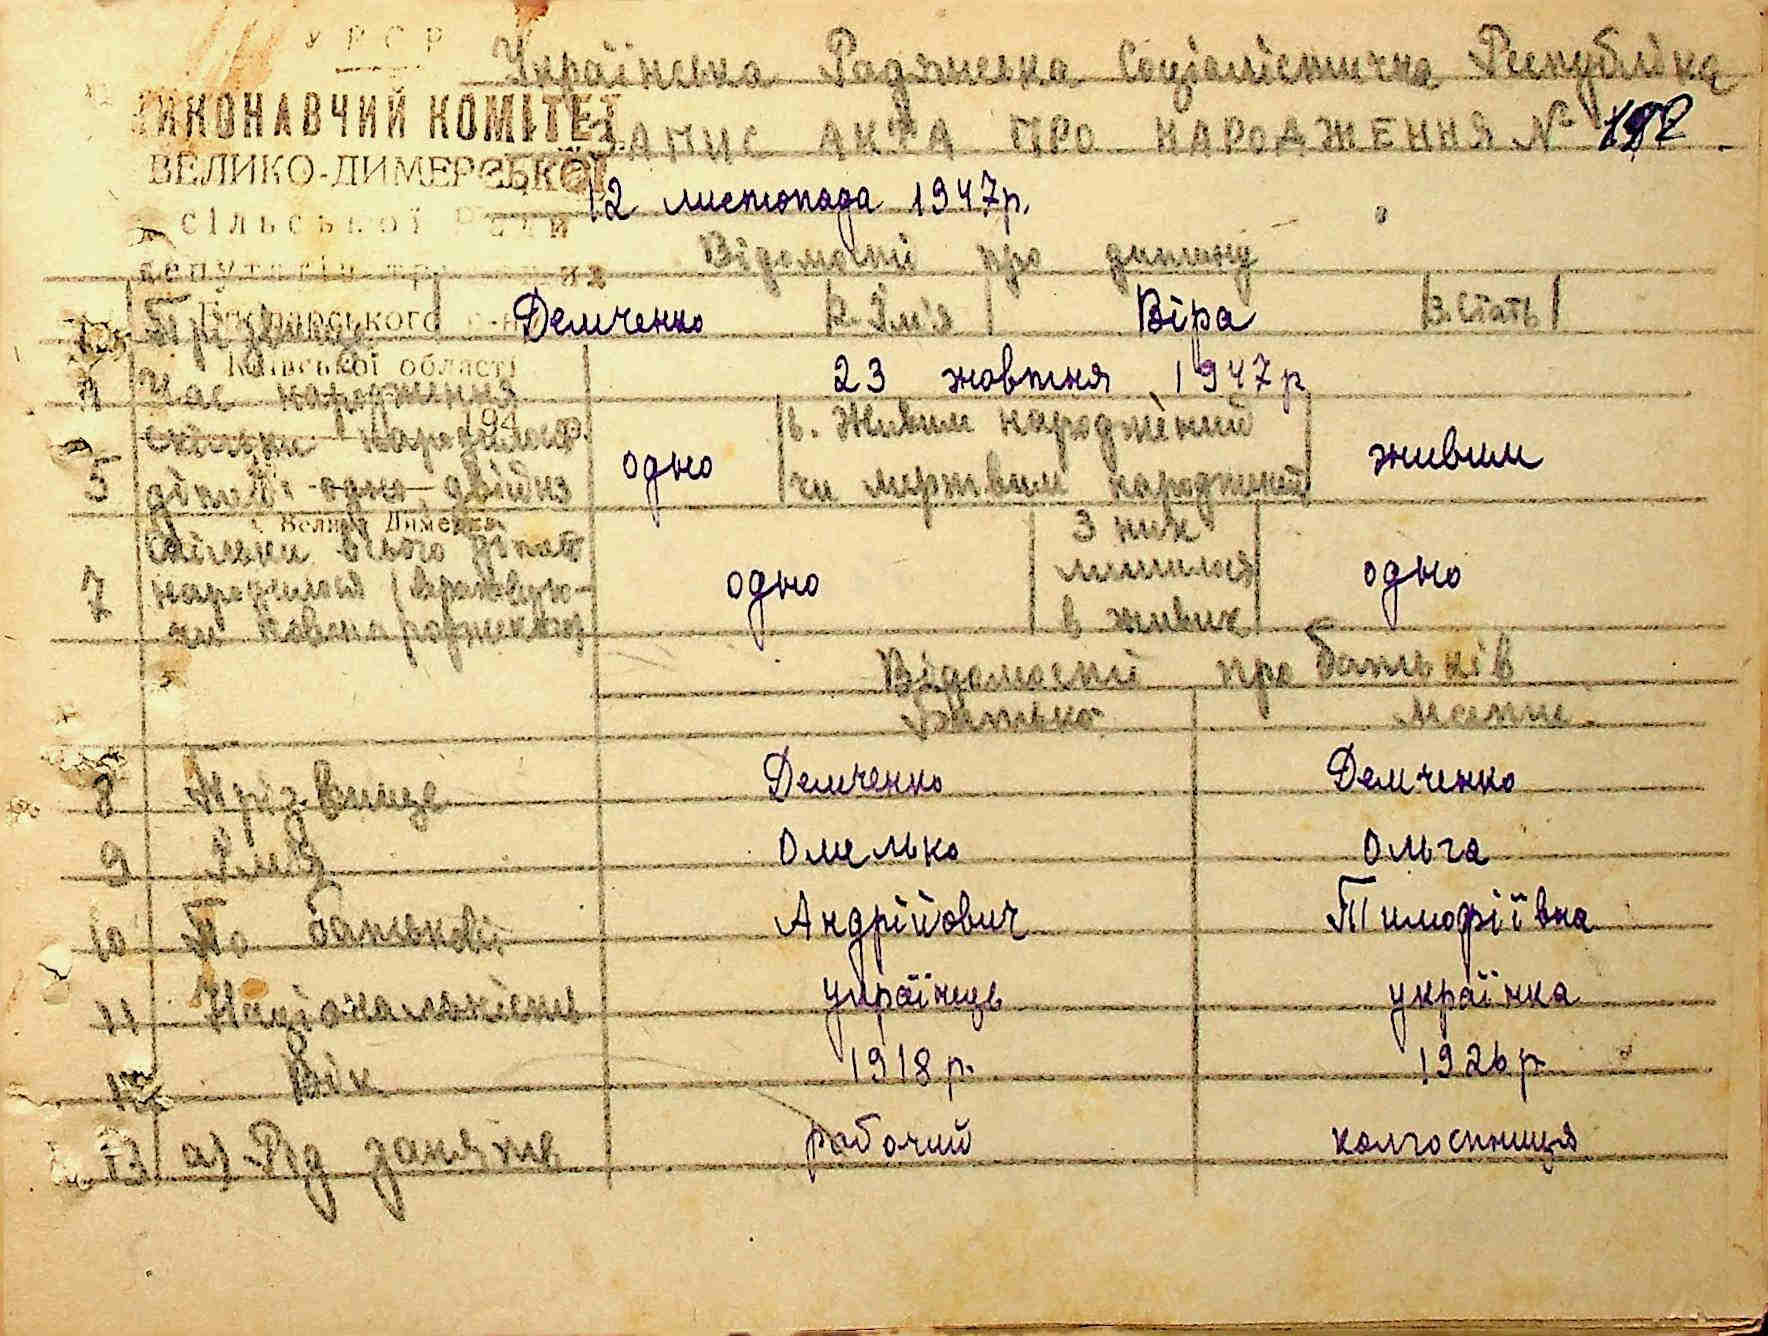 УРСР
Українська Радянська Соціалістична Республіка
ВИКОНАВЧИЙ КОМІТЕТ
ЗАПИС АКТА ПРО НАРОДЖЕННЯ №
ВЕЛИКО-ДИМЕРСЬКОЇ
12 листопада 1947р.
сільської Ради
Відомості про дитину
депутатів
1. Прізвище Демченко 2. Ім'я Віра 3. Стать
Броварського р-ну
Київської області
4 Час народження 23 жовтня 1947р
194 р.
5 Скільки народилося дітей: одно, двійня одно 6. Живим народжений чи мертвим народжений живим
с. Велика Димерка
7 Скільки всього дітей народилося (враховуючи новонароджених) одно З них лишилося в живих одно
Відомості про батьків
Батько Мати
8 Прізвище Демченко Демченко
9 Ім'я Омелько Ольга
10 По батькові Андрійович Тимофіївна
11 Національність українець українка
12 Вік 1918 р. 1926 р.
13 а) Рід занять рабочий колгоспниця